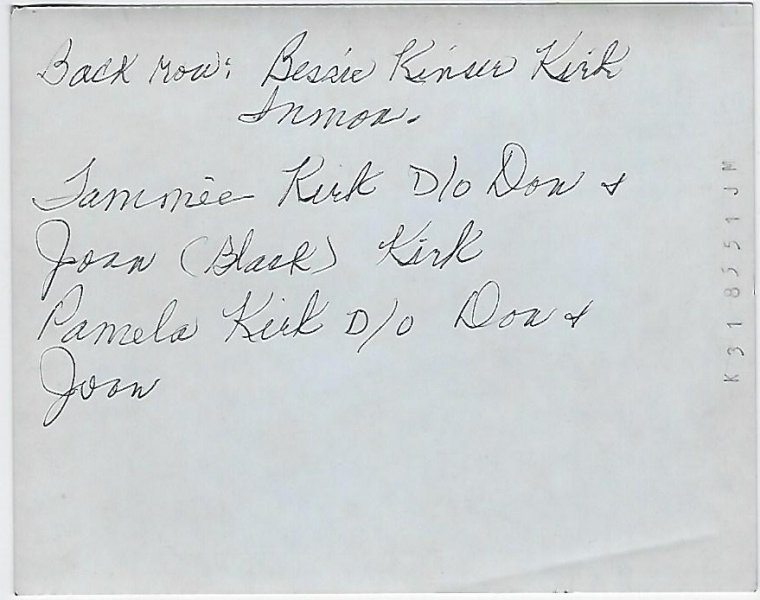 Back row: Bessie Kinser Kirk
Inmon.
Tammie Kirk D/o Don &
Joan (Black) Kirk
Pamela Kirk D/o Don &
Joan
K318551JM